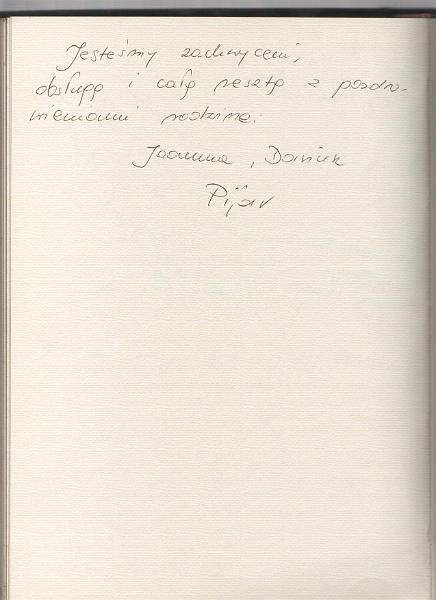 Jesteśmy zachwyceni,
obsługą i całą resztą z pozdro-
wieniami rodzina:
Joanna, Dariusz
Pijar